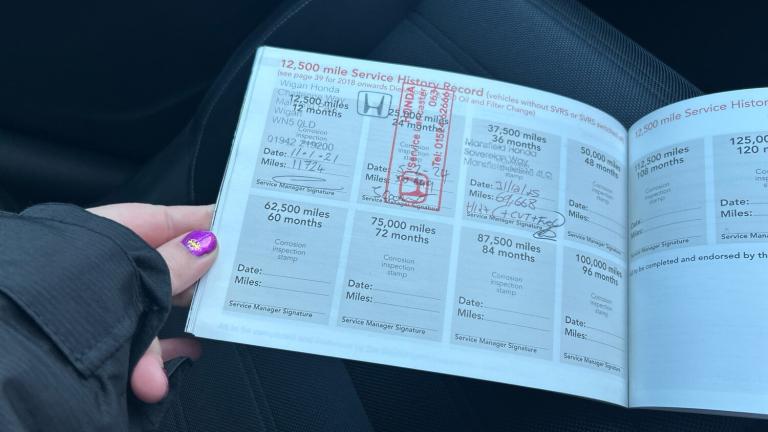 12,500 mile Service History Record (vehicles without SVRS or SVRS switched
(see page 39 for 2018 onwards Oil and Filter Change)
Wigan Honda
Wigan
WN5 0LD
12,500 miles
12 months
Corrosion
inspection
01942
Date: 11.01.21
Miles: 11724
Service Manager Signature
25,000 miles
24 months
Corrosion
inspection
stamp
HONDA
Service Lancaster
Tel: 01524
Date:
Miles:
Service Manager Signature
37,500 miles
36 months
Mansfield Honda
Sovereign Way
Mansfield
Date: 31/10/25
Miles: 69,668
Service Manager Signature
50,000
48 months
Corrosion
inspection
stamp
Date:
Miles:
Service Manager
62,500 miles
60 months
Corrosion
inspection
stamp
Date:
Miles:
Service Manager Signature
75,000 miles
72 months
Corrosion
inspection
stamp
Date:
Miles:
Service Manager Signature
87,500 miles
84 months
Corrosion
inspection
stamp
Date:
Miles:
Service Manager Signature
100,000
96 months
Corrosion
inspection
stamp
Date:
Miles:
Service Manager
12,500 mile Service Histor
112,500 miles
108 months
Corrosion
inspection
stamp
Date:
Miles:
Service Manager Signature
125,0
120 m
Date:
Miles:
Service Manager
to be completed and endorsed by th